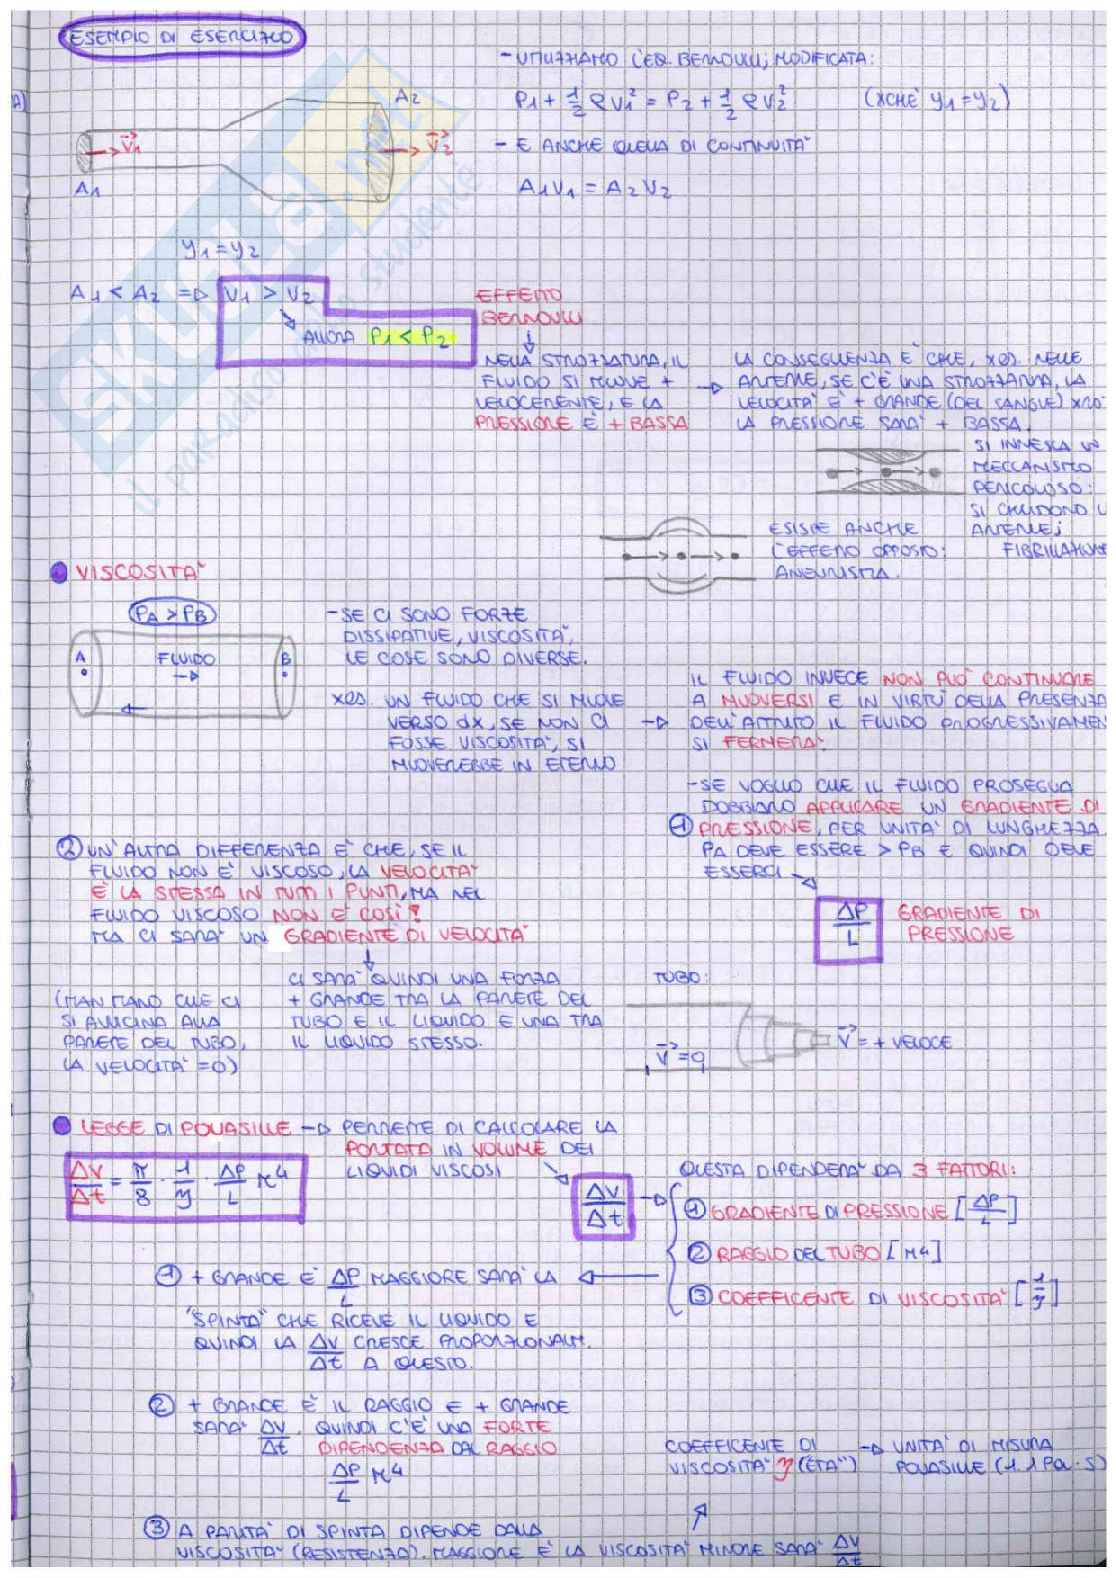 ESEMPIO DI ESERCIZIO
A)
A2
V1
V2
A1
y1 = y2
A1 < A2 => V1 > V2
ALLORA P1 < P2
- UTILIZZIAMO L'EQ. BERNOULLI MODIFICATA:
P1 + 1/2 ρV1² = P2 + 1/2 ρV2² (XCHÈ y1 = y2)
- E ANCHE QUELLA DI CONTINUITÀ
A1V1 = A2V2
EFFETTO
BERNOULLI
NELLA STROZZATURA, IL
FLUIDO SI MUOVE +
VELOCEMENTE, E LA
PRESSIONE È + BASSA
LA CONSEGUENZA È CHE, X es. NELLE
ARTERIE, SE C'È UNA STROZZATURA, LA
VELOCITÀ È + GRANDE (DEL SANGUE) XRÒ
LA PRESSIONE SARÀ + BASSA.
SI INNESCA UN
MECCANISMO
PERICOLOSO:
SI CHIUDONO L
ARTERIE;
FIBRILLAZIONE
ESISTE ANCHE
L'EFFETTO OPPOSTO:
ANEURISMA.
VISCOSITÀ
PA > PB
A
FLUIDO
B
- SE CI SONO FORZE
DISSIPATIVE, VISCOSITÀ,
LE COSE SONO DIVERSE.
X es. UN FLUIDO CHE SI MUOVE
VERSO dx, SE NON CI
FOSSE VISCOSITÀ, SI
MUOVEREBBE IN ETERNO
IL FLUIDO INVECE NON PUÒ CONTINUARE
A MUOVERSI E IN VIRTÙ DELLA PRESENZA
DELL'ATTRITO IL FLUIDO PROGRESSIVAMEN
SI FERMERÀ.
- SE VOGLIO CHE IL FLUIDO PROSEGUA
DOBBIAMO APPLICARE UN GRADIENTE DI
① PRESSIONE, PER UNITÀ DI LUNGHEZZA
PA DEVE ESSERE > PB E QUINDI DEVE
ESSERCI
ΔP/L GRADIENTE DI
PRESSIONE
② UN'ALTRA DIFFERENZA È CHE, SE IL
FLUIDO NON È VISCOSO, LA VELOCITÀ
È LA STESSA IN TUTTI I PUNTI, MA NEL
FLUIDO VISCOSO NON È COSÌ!
MA CI SARÀ UN GRADIENTE DI VELOCITÀ
CI SARÀ QUINDI UNA FORZA
+ GRANDE TRA LA PARETE DEL
TUBO E IL LIQUIDO E UNA TRA
IL LIQUIDO STESSO.
(MAN MANO CHE CI
SI AVVICINA ALLA
PARETE DEL TUBO,
LA VELOCITÀ = 0)
TUBO:
V = + VELOCE
V = 0
LEGGE DI POUASILLE → PERMETTE DI CALCOLARE LA
PORTATA IN VOLUME DEI
LIQUIDI VISCOSI
ΔV/Δt = π/8 · 1/η · ΔP/L r4
ΔV/Δt
QUESTA DIPENDERÀ DA 3 FATTORI:
① GRADIENTE DI PRESSIONE [ΔP/L]
② RAGGIO DEL TUBO [r4]
③ COEFFICENTE DI VISCOSITÀ [1/η]
① + GRANDE È ΔP/L MAGGIORE SARÀ LA
"SPINTA" CHE RICEVE IL LIQUIDO E
QUINDI LA ΔV/Δt CRESCE PROPORZIONALM.
A QUESTO.
② + GRANDE È IL RAGGIO E + GRANDE
SARÀ ΔV/Δt. QUINDI C'È UNA FORTE
DIPENDENZA DAL RAGGIO
ΔP/L r4
COEFFICENTE DI
VISCOSITÀ η ("ETA")
→ UNITÀ DI MISURA
POUASILLE (1.1 Pa·s)
③ A PARITÀ DI SPINTA DIPENDE DALLA
VISCOSITÀ (RESISTENZA). MAGGIORE È LA VISCOSITÀ MINORE SARÀ ΔV/Δt